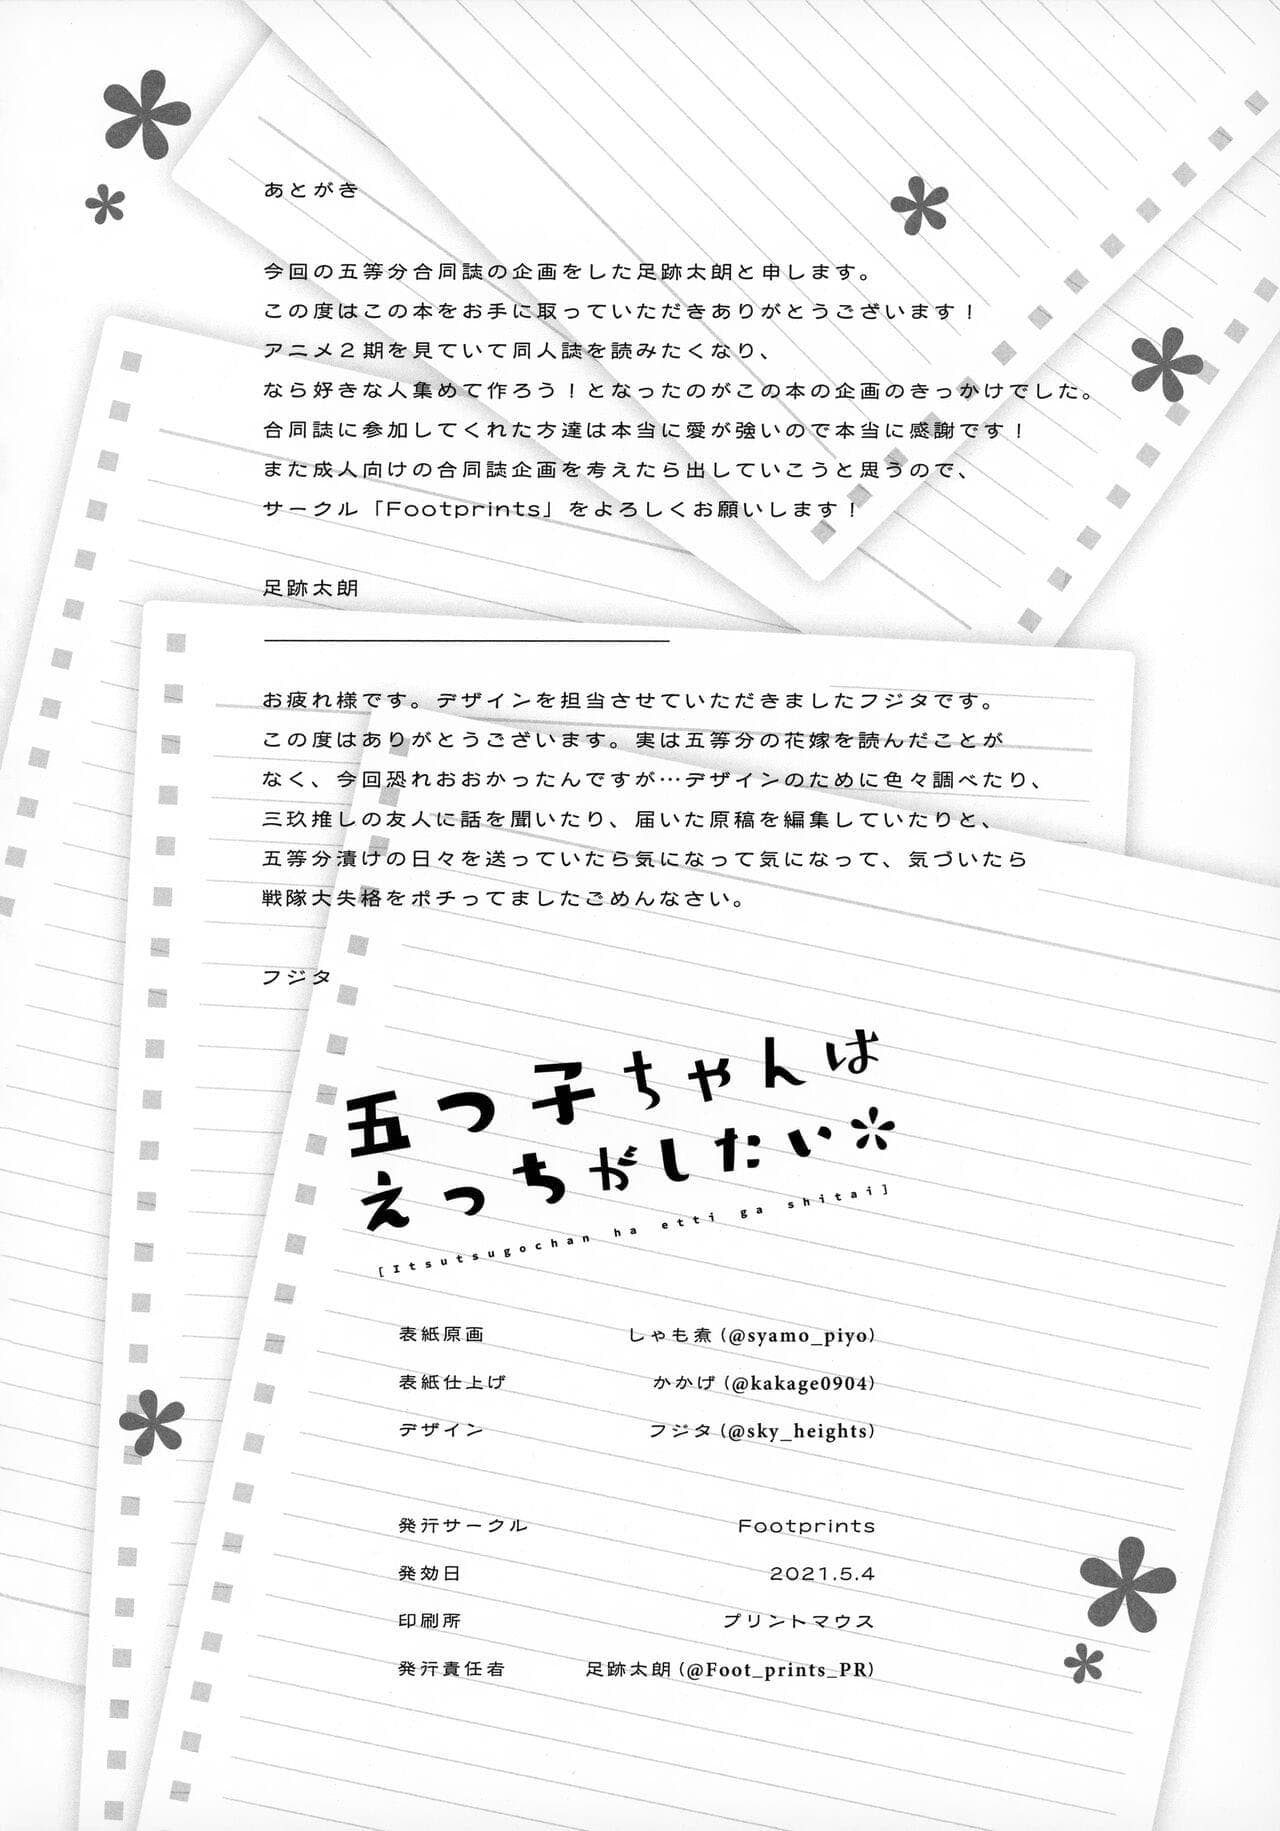 あとがき
今回の五等分合同誌の企画をした足跡太朗と申します。
この度はこの本をお手に取っていただきありがとうございます！
アニメ２期を見ていて同人誌を読みたくなり、
なら好きな人集めて作ろう！となったのがこの本の企画のきっかけでした。
合同誌に参加してくれた方達は本当に愛が強いので本当に感謝です！
また成人向けの合同誌企画を考えたら出していこうと思うので、
サークル「Footprints」をよろしくお願いします！
足跡太朗
お疲れ様です。デザインを担当させていただきましたフジタです。
この度はありがとうございます。実は五等分の花嫁を読んだことが
なく、今回恐れおおかったんですが…デザインのために色々調べたり、
三玖推しの友人に話を聞いたり、届いた原稿を編集していたりと、
五等分漬けの日々を送っていたら気になって気になって、気づいたら
戦隊大失格をポチってましたごめんなさい。
フジタ
五つ子ちゃんは
えっちがしたい＊
[Itsutsugochan ha etti ga shitai]
表紙原画 しゃも煮（@syamo_piyo）
表紙仕上げ かかげ（@kakage0904）
デザイン フジタ（@sky_heights）
発行サークル Footprints
発効日 2021.5.4
印刷所 プリントマウス
発行責任者 足跡太朗（@Foot_prints_PR）